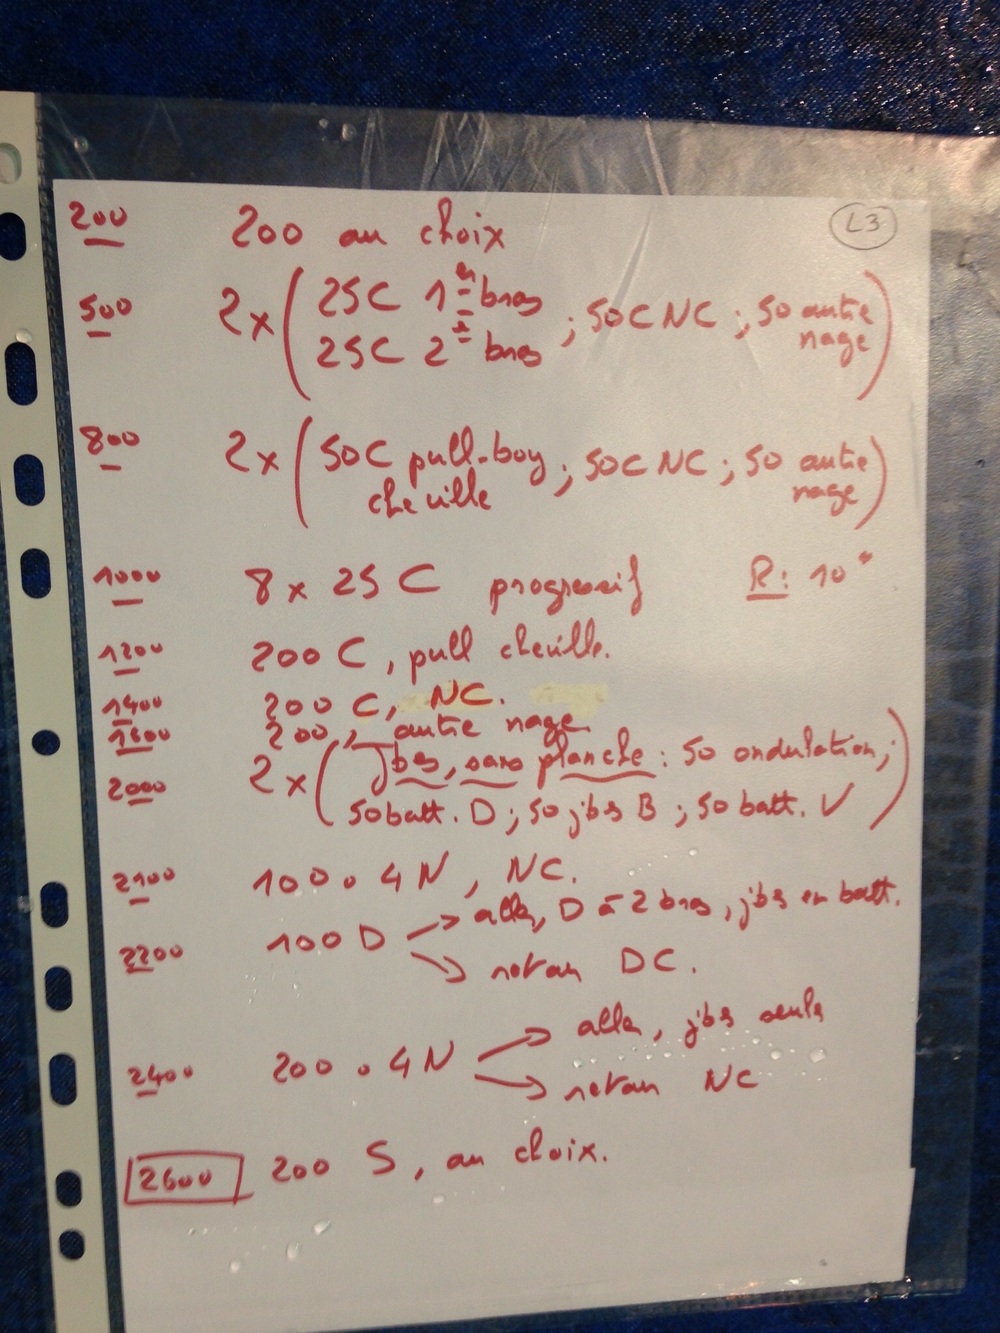 L3
200 200 au choix
500 2x ( 25C 1er bras ; 50C NC ; 50 autre
25C 2e bras nage )
800 2x ( 50C pull-boy ; 50C NC ; 50 autre
cheville nage )
1000 8 x 25 C progressif R: 10"
1200 200 C, pull cheville.
1400 200 C, NC.
1600 200, autre nage
2000 2x ( Jbes, sans planche : 50 ondulation ;
50 batt. D ; 50 jbes B ; 50 batt. V )
2100 100 . 4 N, NC.
2200 100 D → aller, D à 2 bras, jbs en batt.
→ retour DC.
2400 200 . 4 N → aller, jbs seuls
→ retour NC
2600 200 S, au choix.